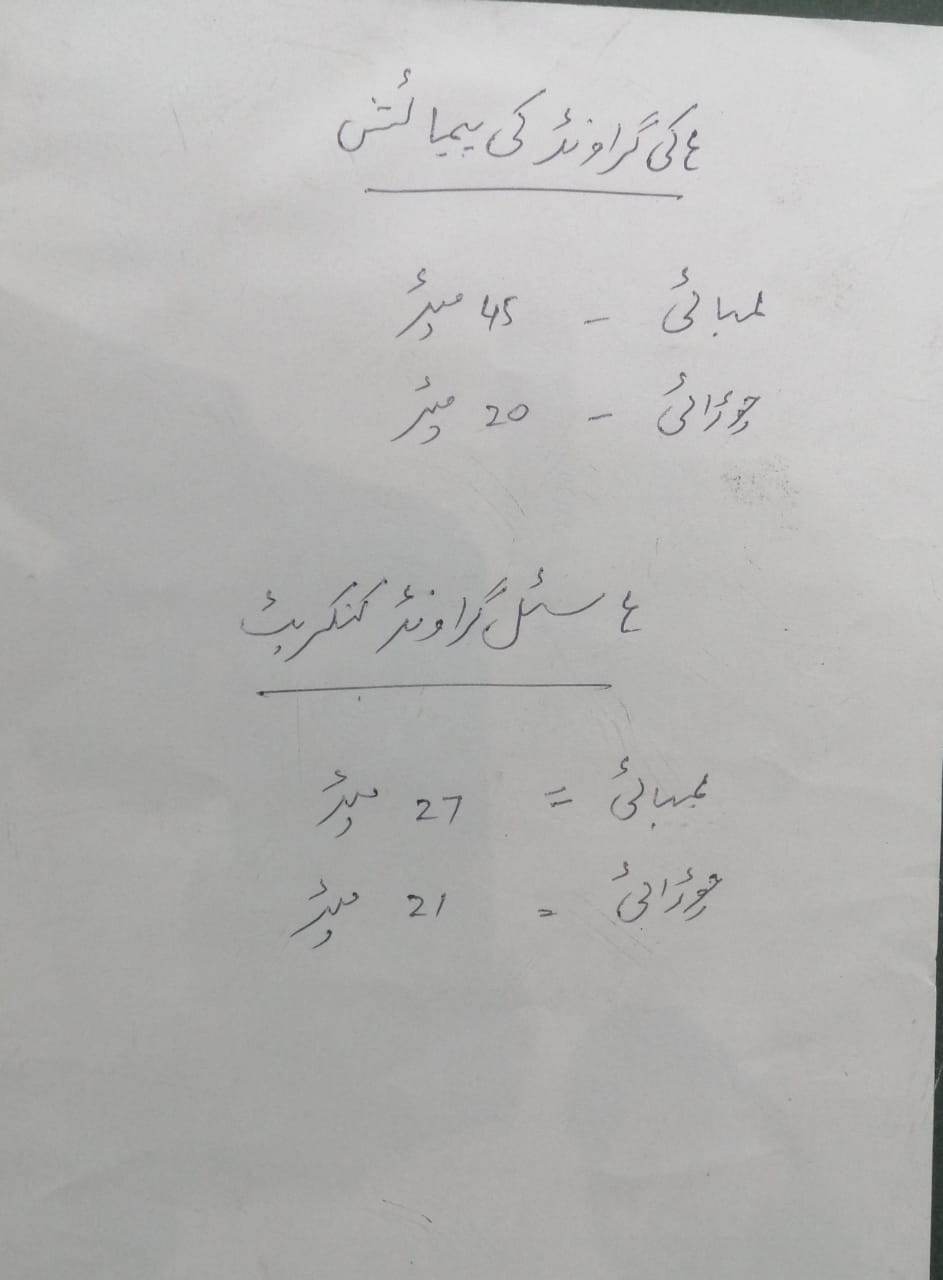 کی گراونڈ کی پیمائش
لمبائی - 45 میٹر
چوڑائی - 20 میٹر
گراونڈ کنکریٹ
لمبائی = 27 میٹر
چوڑائی = 21 میٹر